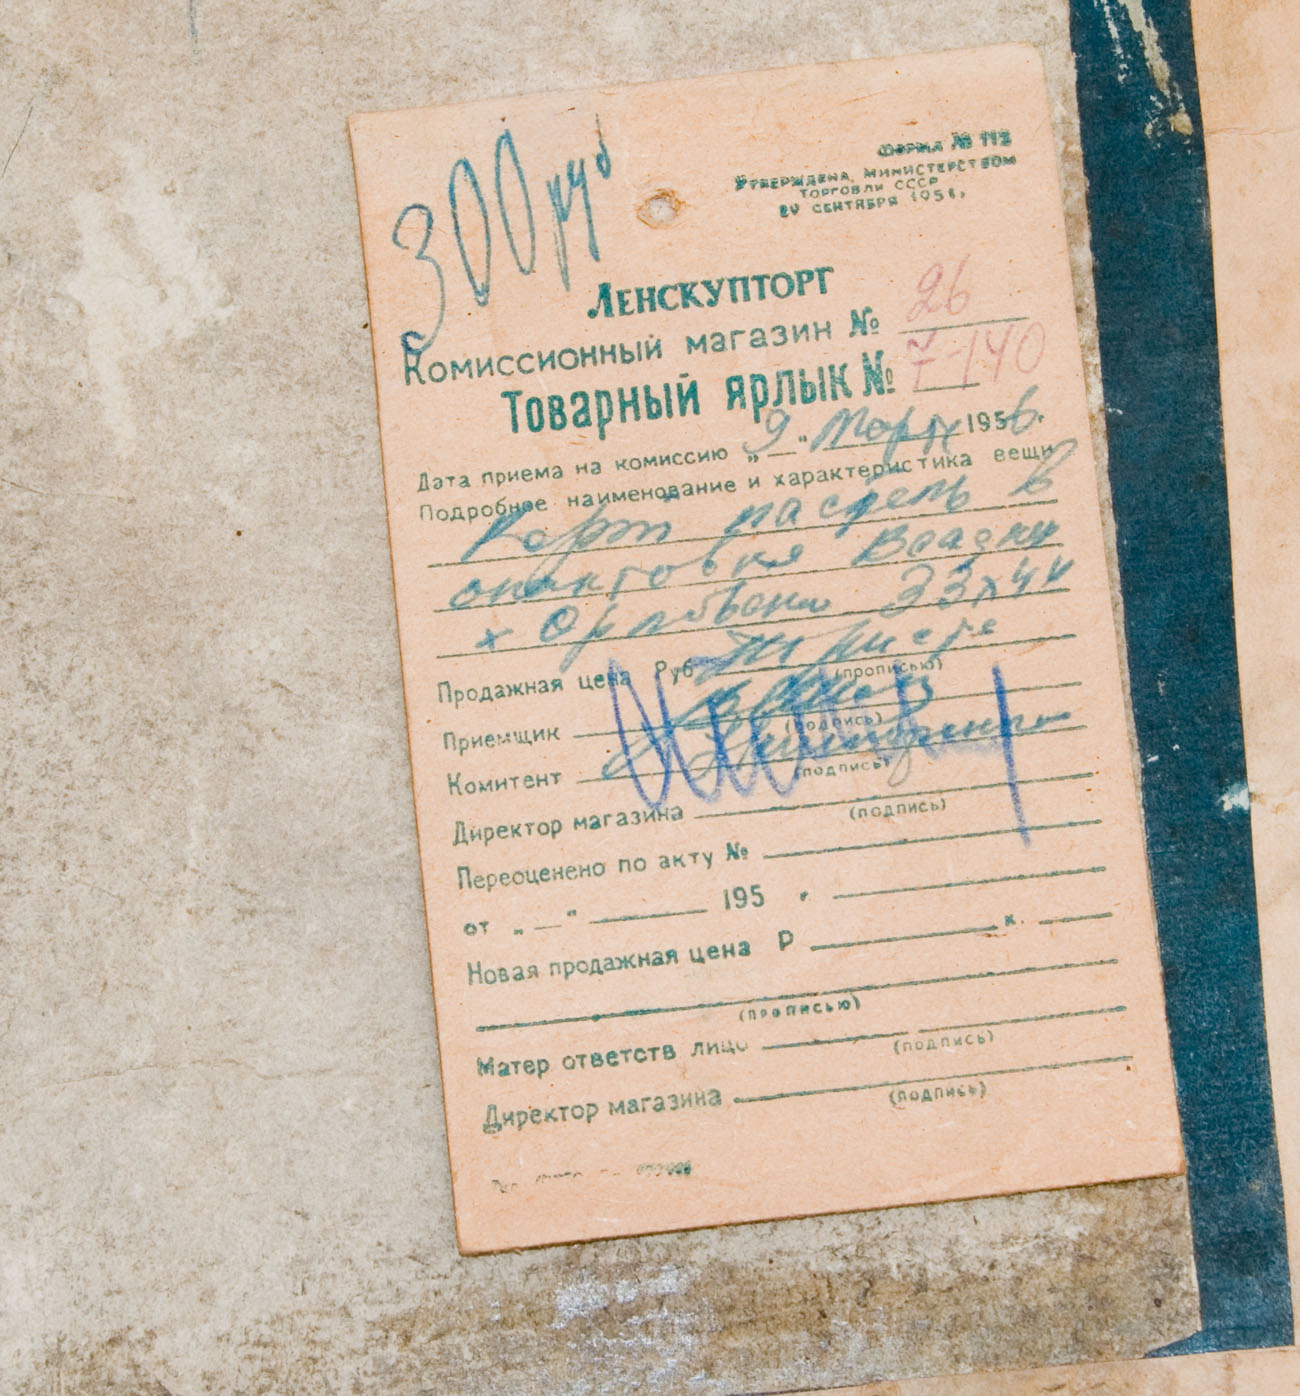 300 руб
ФОРМА № 112
УТВЕРЖДЕНА МИНИСТЕРСТВОМ
ТОРГОВЛИ СССР
20 СЕНТЯБРЯ 1951,
ЛЕНСКУПТОРГ
КОМИССИОННЫЙ МАГАЗИН № 26
ТОВАРНЫЙ ЯРЛЫК № 7-140
Дата приема на комиссию „9" Марта 1956 г.
Подробное наименование и характеристика вещи
пастель в
33х44
Продажная цена Руб Триста
(прописью)
Приемщик
(подпись)
Комитент
(подпись)
Директор магазина
(подпись)
Переоценено по акту №
от „ " 195 г
Новая продажная цена Р к.
(прописью)
Матер ответств лицо
(подпись)
Директор магазина
(подпись)